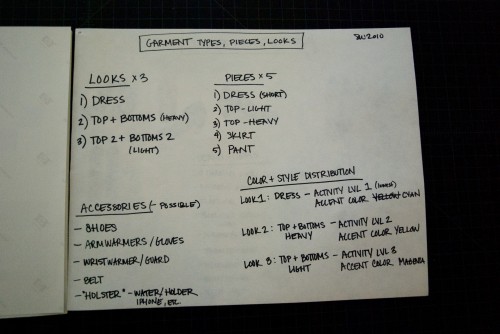 GARMENT TYPES, PIECES, LOOKS
LOOKS x 3
1) DRESS
2) TOP + BOTTOMS (HEAVY)
3) TOP 2 + BOTTOMS 2
(LIGHT)
PIECES x 5
1) DRESS (SHORT)
2) TOP - LIGHT
3) TOP - HEAVY
4) SKIRT
5) PANT
ACCESSORIES (- POSSIBLE)
- SHOES
- ARMWARMERS / GLOVES
- WRISTWARMER / GUARD
- BELT
- "HOLSTER" - WATER/HOLDER
IPHONE, ER.
COLOR + STYLE DISTRIBUTION
LOOK 1: DRESS - ACTIVITY LVL 1
ACCENT COLOR YELLOW CYAN
LOOK 2: TOP + BOTTOMS - ACTIVITY LVL 2
HEAVY ACCENT COLOR YELLOW
LOOK 3: TOP + BOTTOMS - ACTIVITY LVL 3
LIGHT ACCENT COLOR MAGENTA